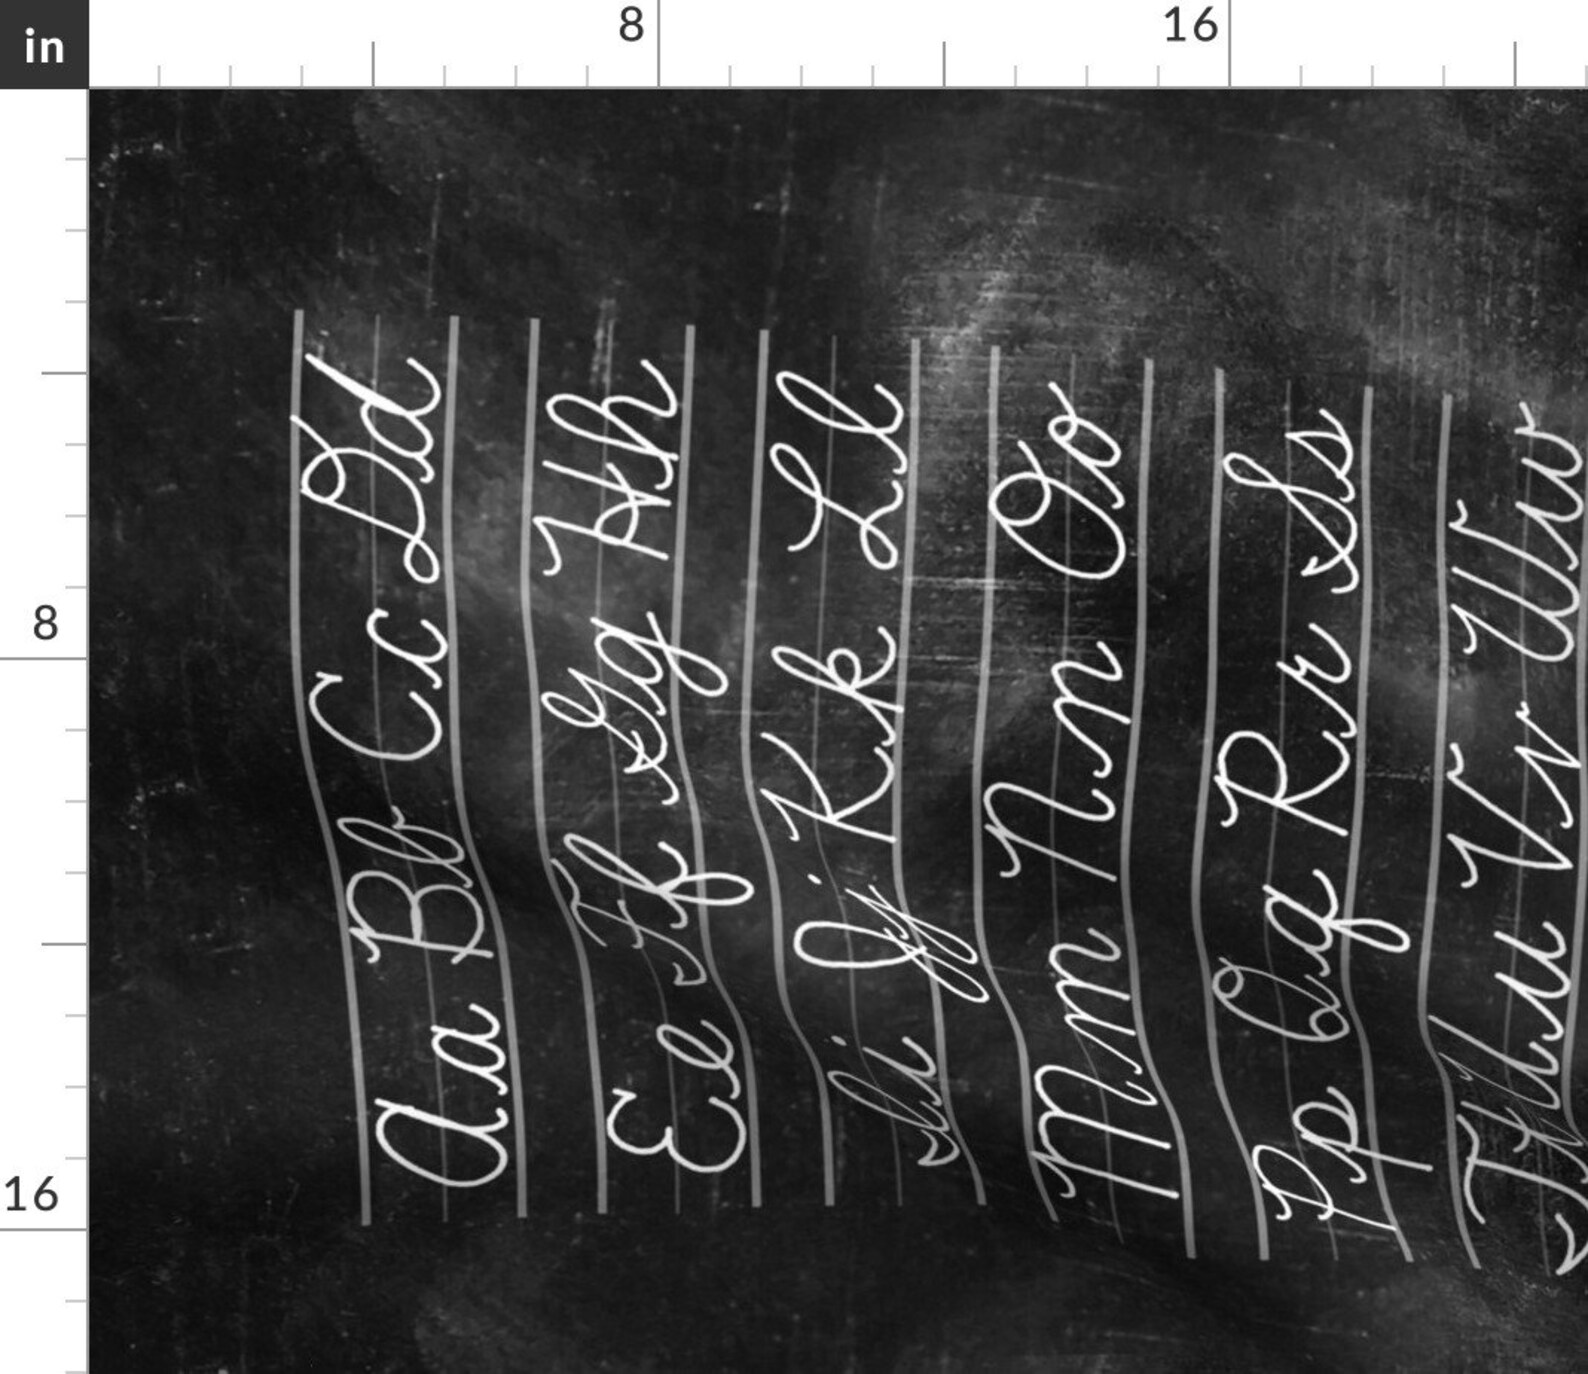 in
8
16
8
16
Aa Bb Cc Dd
Ee Ff Gg Hh
Ii Jj Kk Ll
Mm Nn Oo
Pp Qq Rr Ss
Tt Uu Vv Ww